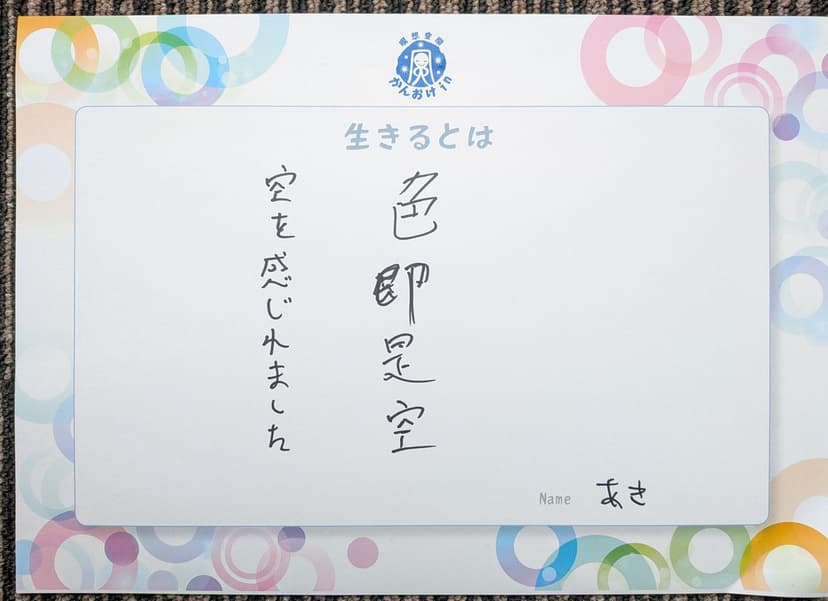 瞑想空間
かんおけin
生きるとは
色即是空
空を感じれました
Name あき